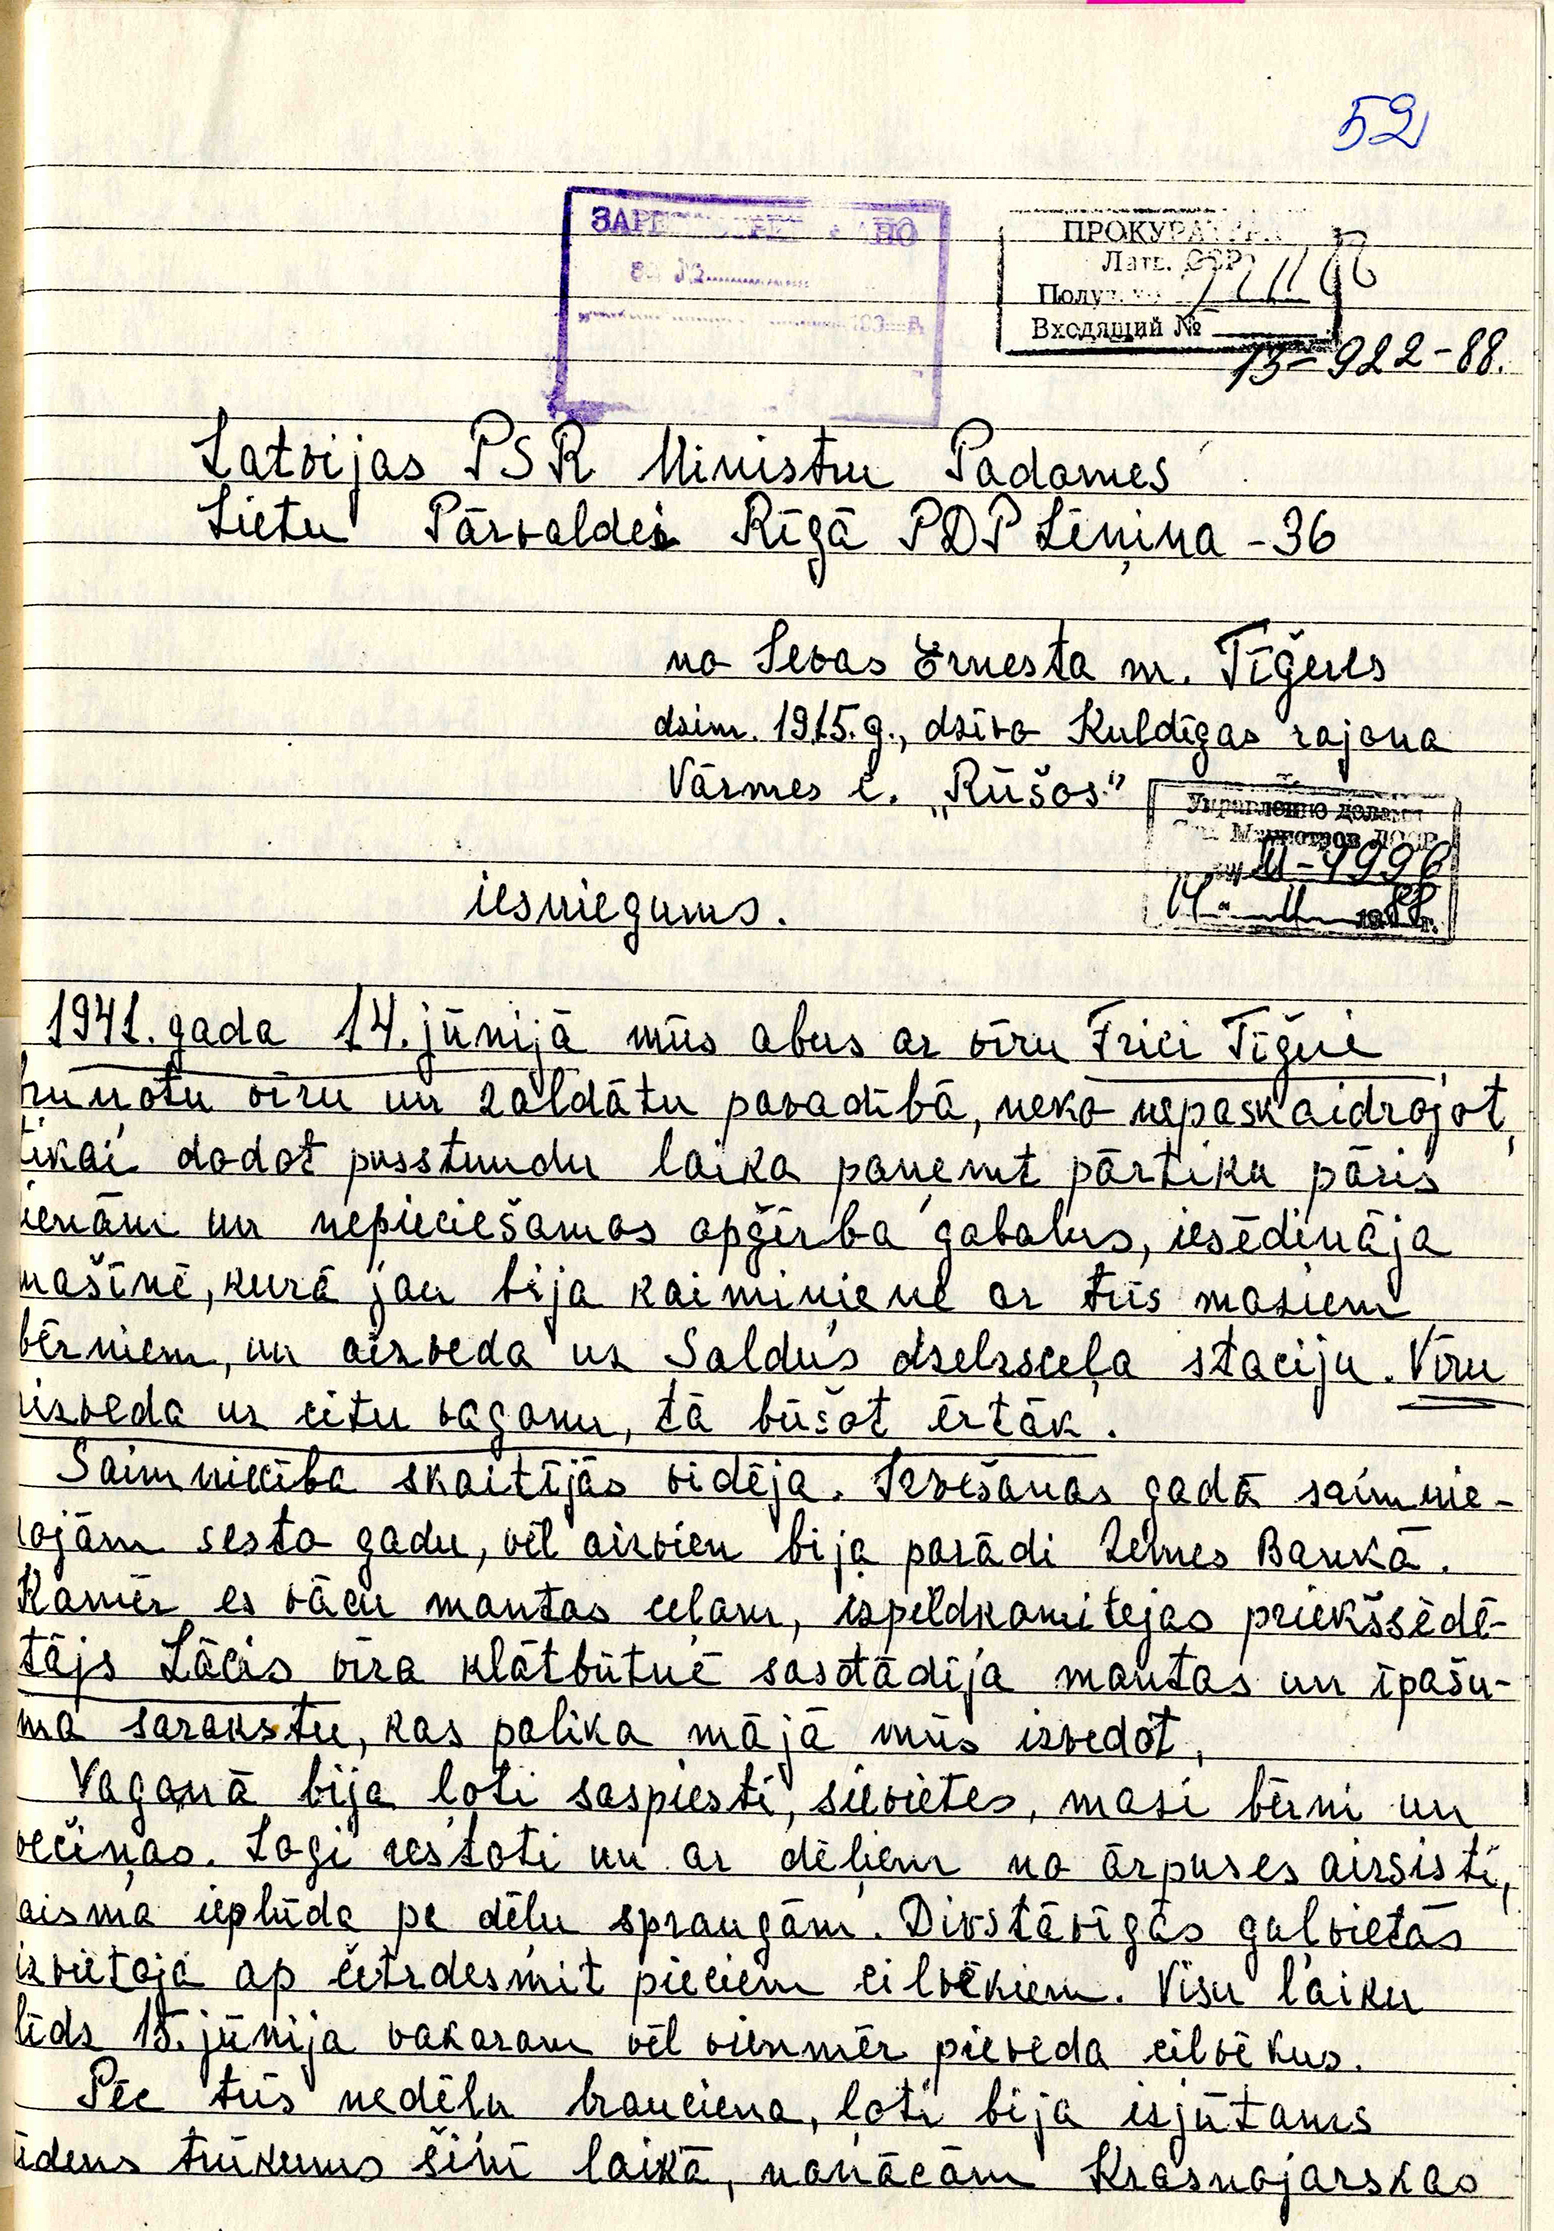 52
ПРОКУРАТУРА
Латв. ССР
Входящий №
13-922-88.
Latvijas PSR Ministru Padomes
Lietu Pārvaldei Rīgā PDP Ļeņina - 36
no Ievas Ernesta m. Tīģeres
dzim. 1915. g., dzīvo Kuldīgas rajona
Vārmes c. „Rūšos"
Управление делами
Сов. Министров ЛССР
14. II 1988 г.
iesniegums.
1941. gada 14. jūnijā mūs abus ar vīru Frici Tīģeri
bruņotu vīru un zaldātu pavadībā, neko nepaskaidrojot,
tikai dodot pusstundu laika paņemt pārtiku pāris
ienām un nepieciešamos apģērba gabalus, iesēdināja
mašīnē, kurā jau bija kaimiņiene ar trīs maziem
bērniem, un aizveda uz Saldus dzelzsceļa staciju. Vīru
aizveda uz citu vagonu, tā būšot ērtāk.
Saimniecība skaitījās vidēja. Izvešanas gadā saimnie-
kojām sesto gadu, vēl aizvien bija parādi Zemes Bankā.
Kamēr es vācu mantas ceļam, izpildkomitejas priekšsēdē-
tājs Lācis vīra klātbūtnē sastādīja mantas un īpašu-
ma sarakstu, kas palika mājā mūs izvedot,
Vagonā bija ļoti saspiesti, sievietes, mazi bērni un
večiņas. Logi restoti un ar dēļiem no ārpuses aizsisti,
aisma ieplūda pa dēļu spraugām. Divstāvīgās guļvietās
izvietoja ap četrdesmit pieciem cilvēkiem. Visu laiku
līdz 15. jūnija vakaram vēl vienmēr pieveda cilvēkus.
Pēc trīs nedēļu brauciena, ļoti bija izjūtams
ūdens trūkums šinī laikā, nonācām Krasnojarskas